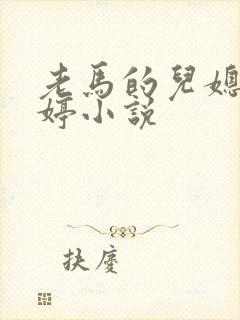 老馬的兒媳
婷小説
扶慶